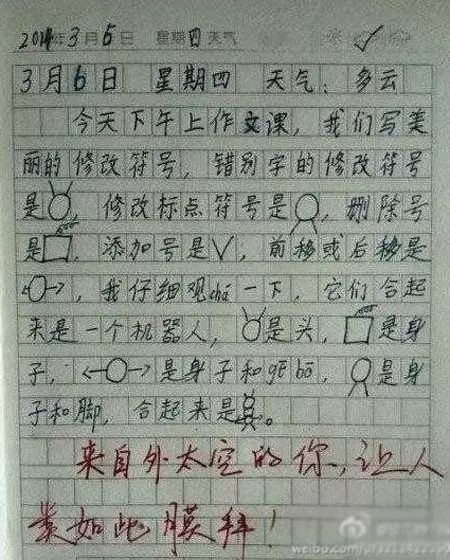 2014年3月6日 星期四天气
3月6日 星期四 天气：多云
今天下午上作文课，我们写美
丽的修改符号，错别字的修改符号
是，修改标点符号是，删除号
是，添加号是√，前移或后移是
，我仔细观chá一下，它们合起
来是一个机器人，是头，是身
子，是身子和gēbō，是身
子和脚，合起来是。
来自外太空的你，让人
类如此膜拜！